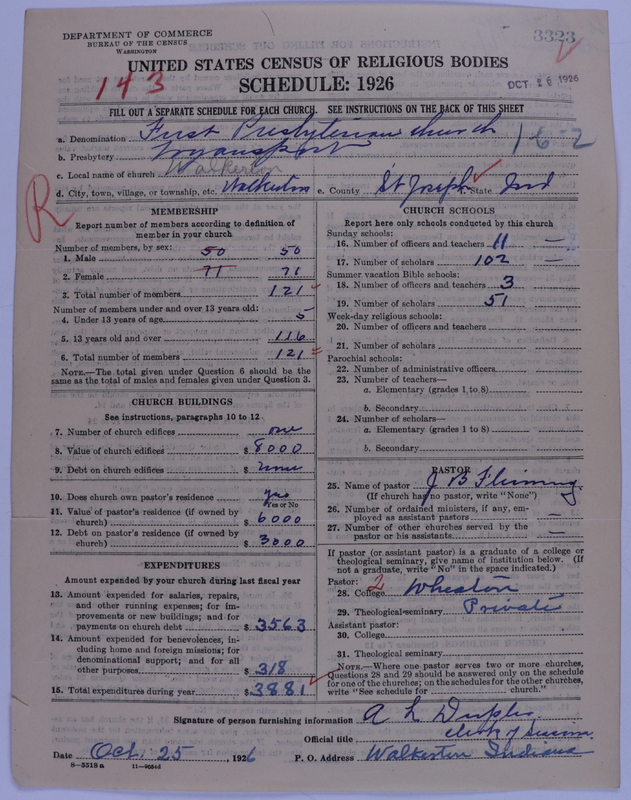 DEPARTMENT OF COMMERCE
BUREAU OF THE CENSUS
WASHINGTON
3323
UNITED STATES CENSUS OF RELIGIOUS BODIES
SCHEDULE: 1926
143
OCT 26 1926
FILL OUT A SEPARATE SCHEDULE FOR EACH CHURCH. SEE INSTRUCTIONS ON THE BACK OF THIS SHEET
a. Denomination First Presbyterian church
162
b. Presbytery Logansport
c. Local name of church Walkerton
d. City, town, village, or township, etc. Walkerton e. County St Joseph f. State Ind
R
MEMBERSHIP
Report number of members according to definition of
member in your church
Number of members, by sex:
1. Male 50 50
2. Female 71 71
3. Total number of members 121
Number of members under and over 13 years old:
4. Under 13 years of age 5
5. 13 years old and over 116
6. Total number of members 121
NOTE.—The total given under Question 6 should be
same as the total of males and females given under Question 3.
CHURCH BUILDINGS
See instructions, paragraphs 10 to 12
7. Number of church edifices one
8. Value of church edifices $ 8000
9. Debt on church edifices $ none
10. Does church own pastor's residence yes
Yes or No
11. Value of pastor's residence (if owned by
church) $ 6000
12. Debt on pastor's residence (if owned by
church) $ 3000
EXPENDITURES
Amount expended by your church during last fiscal year
13. Amount expended for salaries, repairs,
and other running expenses; for im-
provements or new buildings; and for
payments on church debt $ 3563
14. Amount expended for benevolences, in-
cluding home and foreign missions; for
denominational support; and for all
other purposes $ 318
15. Total expenditures during year $ 3881
CHURCH SCHOOLS
Report here only schools conducted by this church
Sunday schools:
16. Number of officers and teachers 11 —
17. Number of scholars 102 —
Summer vacation Bible schools:
18. Number of officers and teachers 3
19. Number of scholars 51
Week-day religious schools:
20. Number of officers and teachers
21. Number of scholars
Parochial schools:
22. Number of administrative officers
23. Number of teachers—
a. Elementary (grades 1 to 8)
b. Secondary
24. Number of scholars—
a. Elementary (grades 1 to 8)
b. Secondary
PASTOR
25. Name of pastor J B Fleming
(If church has no pastor, write "None")
26. Number of ordained ministers, if any, em-
ployed as assistant pastors —
27. Number of other churches served by the
pastor or his assistants —
If pastor (or assistant pastor) is a graduate of a college or
theological seminary, give name of institution below. (If
not a graduate, write "No" in the space indicated.)
Pastor: 2
28. College Wheaton
29. Theological seminary Private
Assistant pastor:
30. College
31. Theological seminary
NOTE.—Where one pastor serves two or more churches,
Questions 28 and 29 should be answered only on the schedule
for one of the churches; on the schedules for the other churches,
write "See schedule for church."
Signature of person furnishing information A L
Official title Clerk of
Date Oct. 25, 1926 P. O. Address Walkerton Indiana
8—5518 a